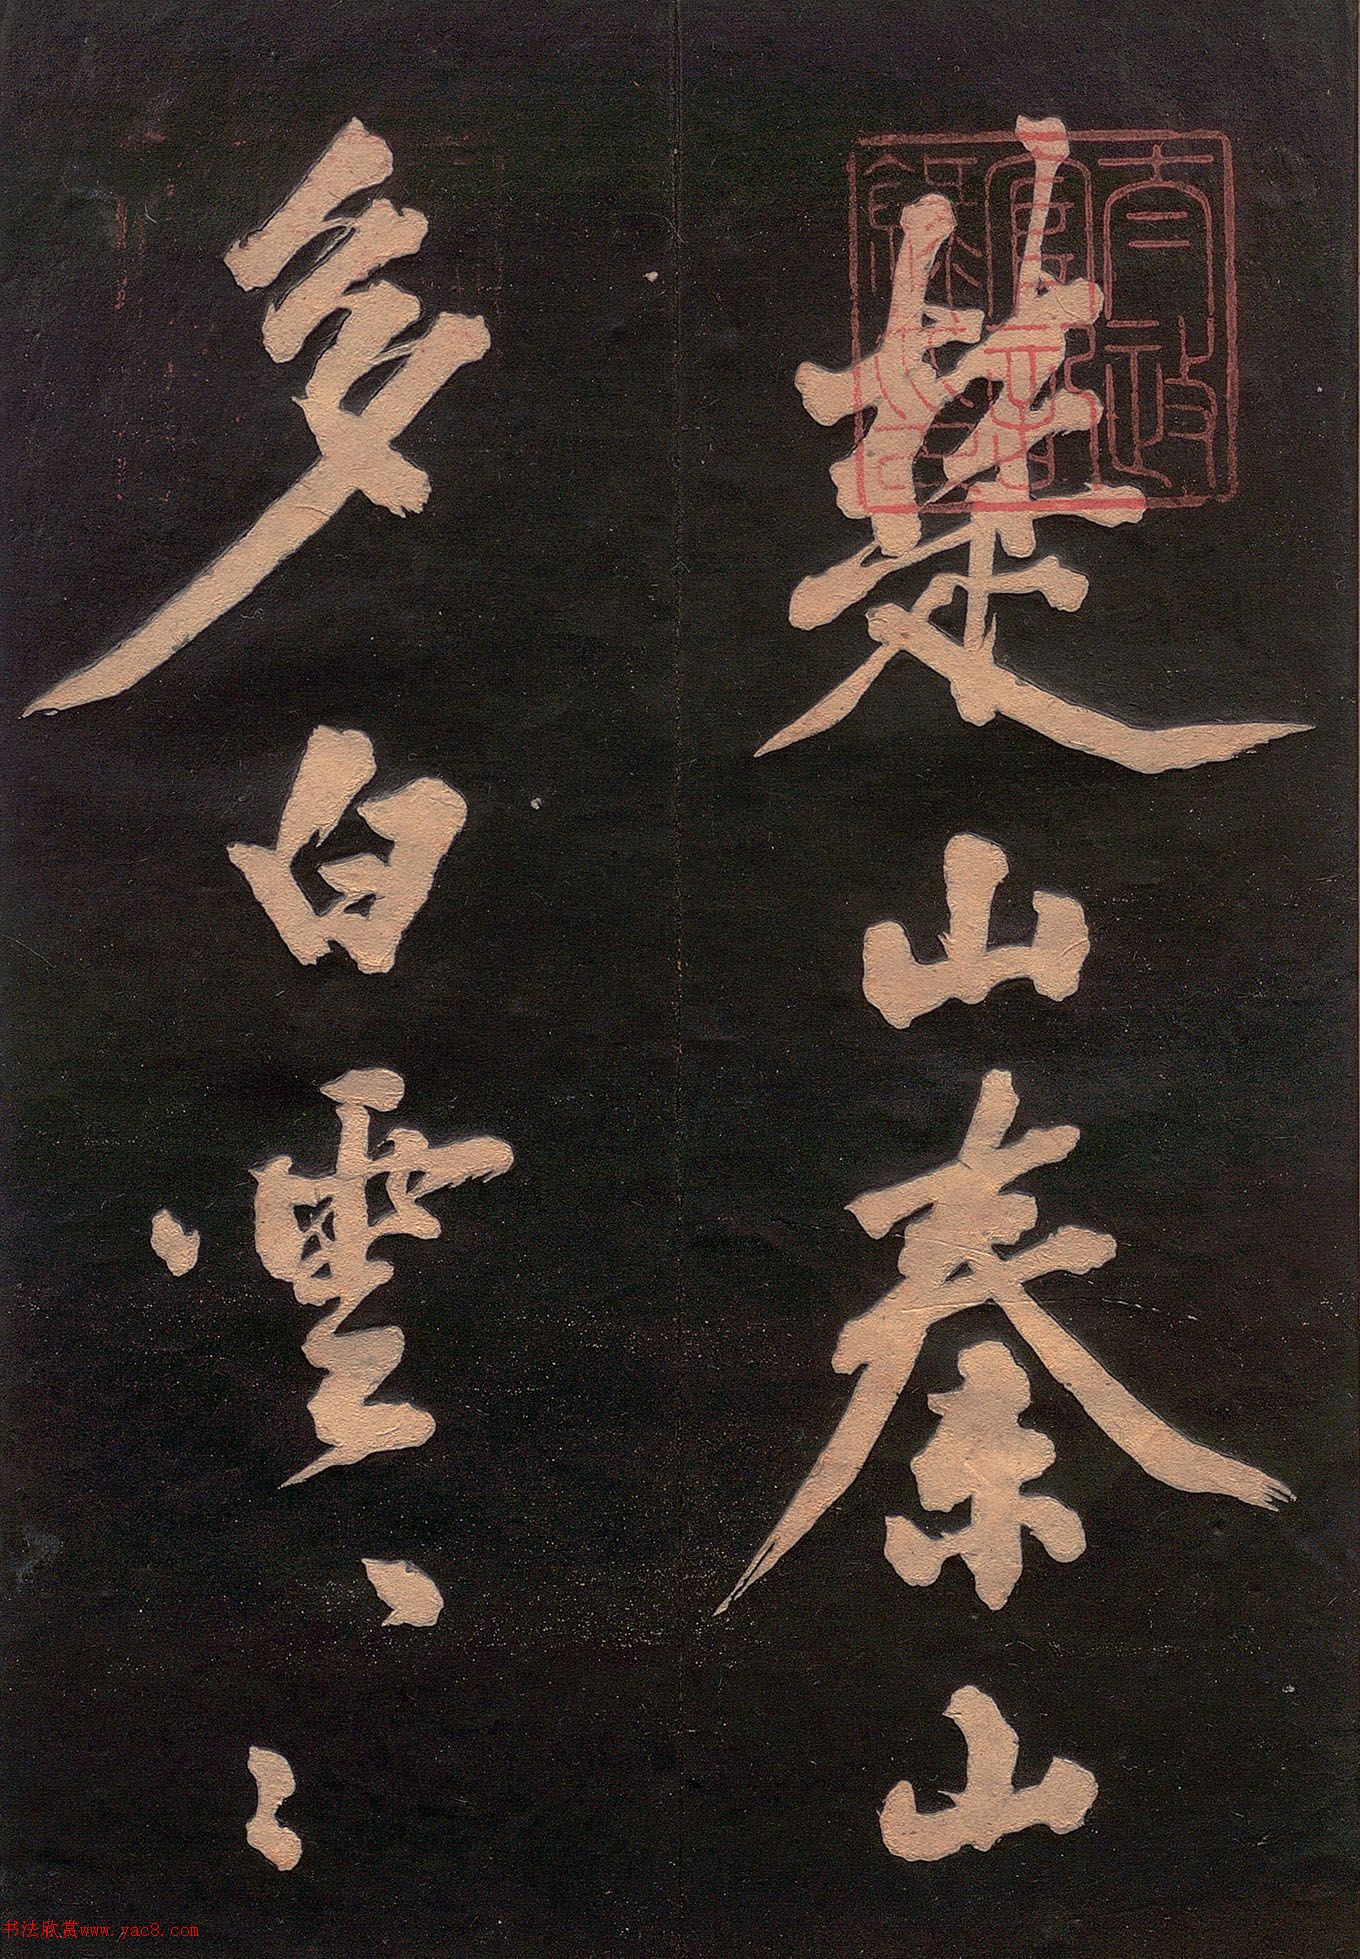 楚山秦山
多白雲〻〻
书法欣赏www.yac8.com